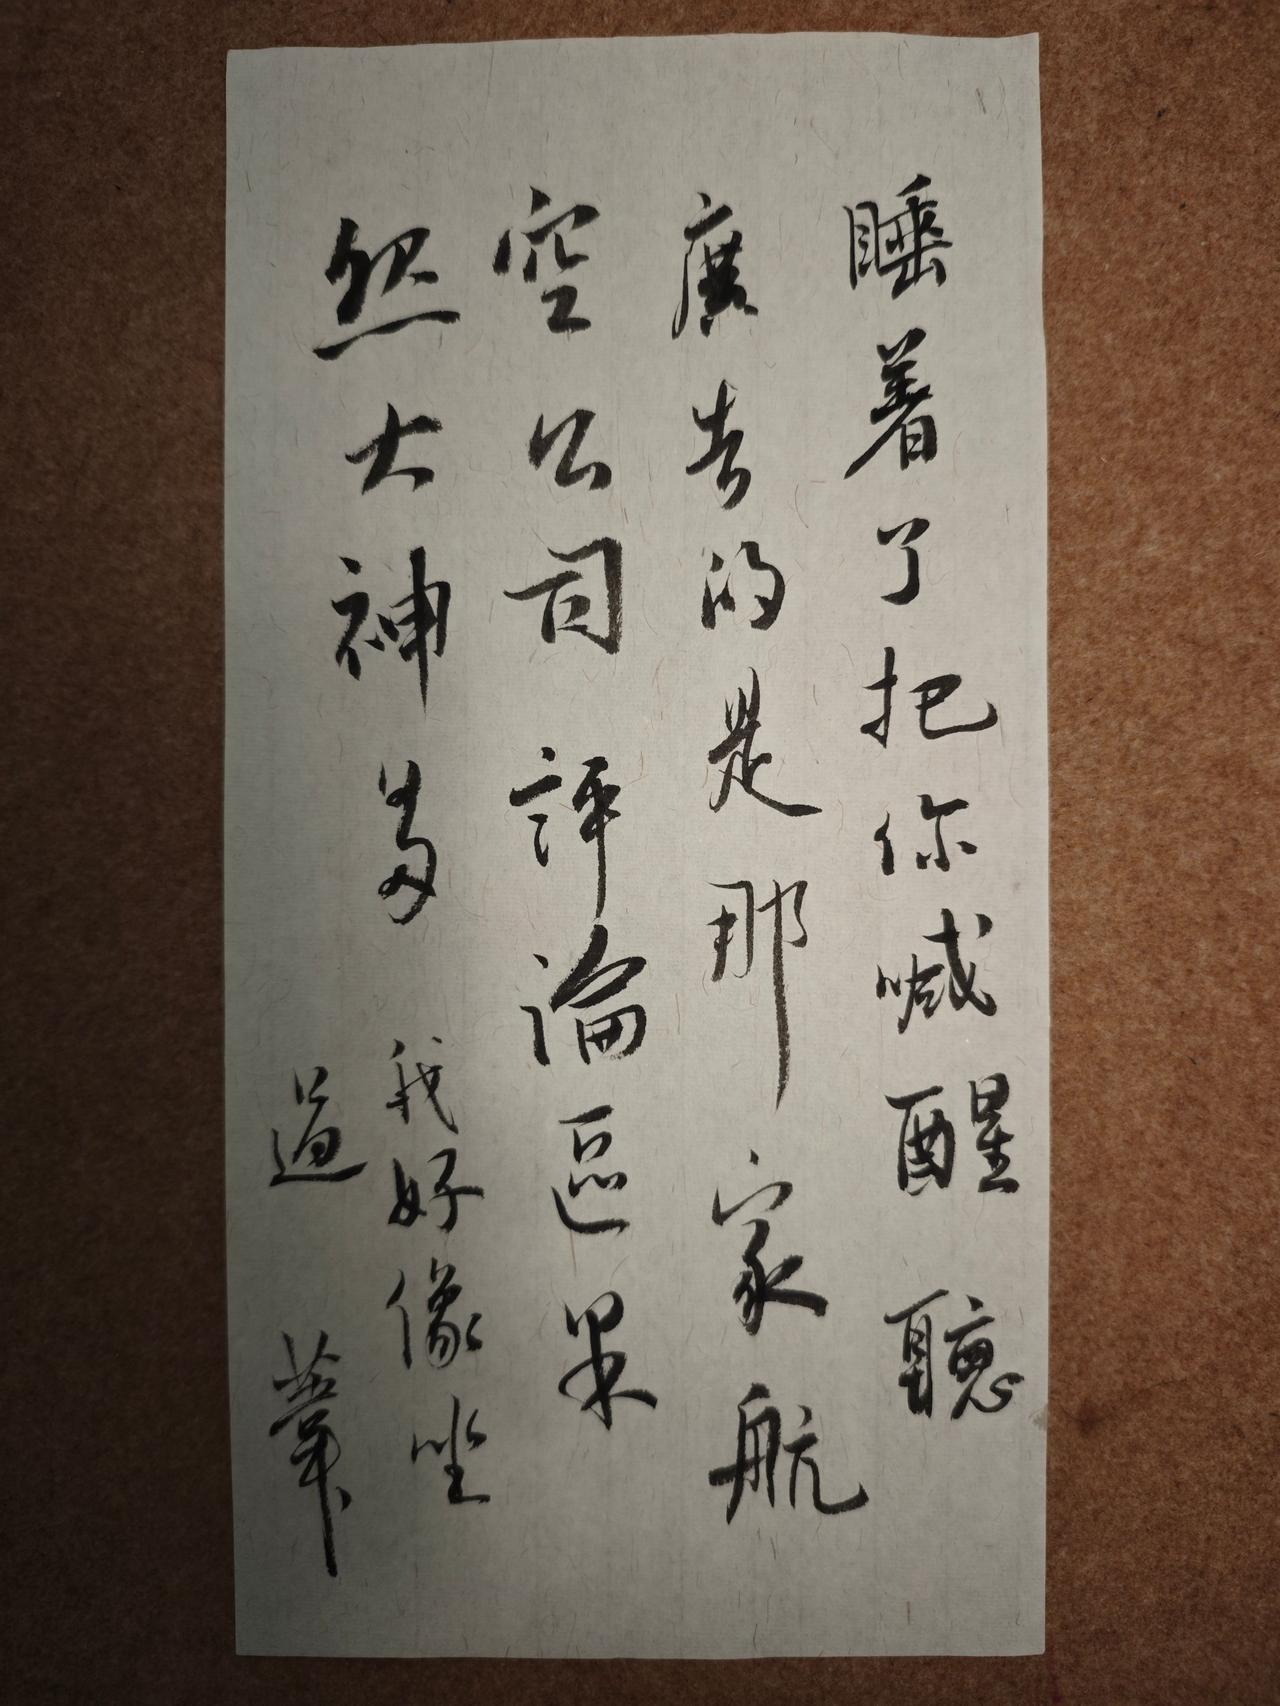 睡着了把你喊醒聽
廣告的是那家航
空公司評論區果
然大神多我好像坐
過